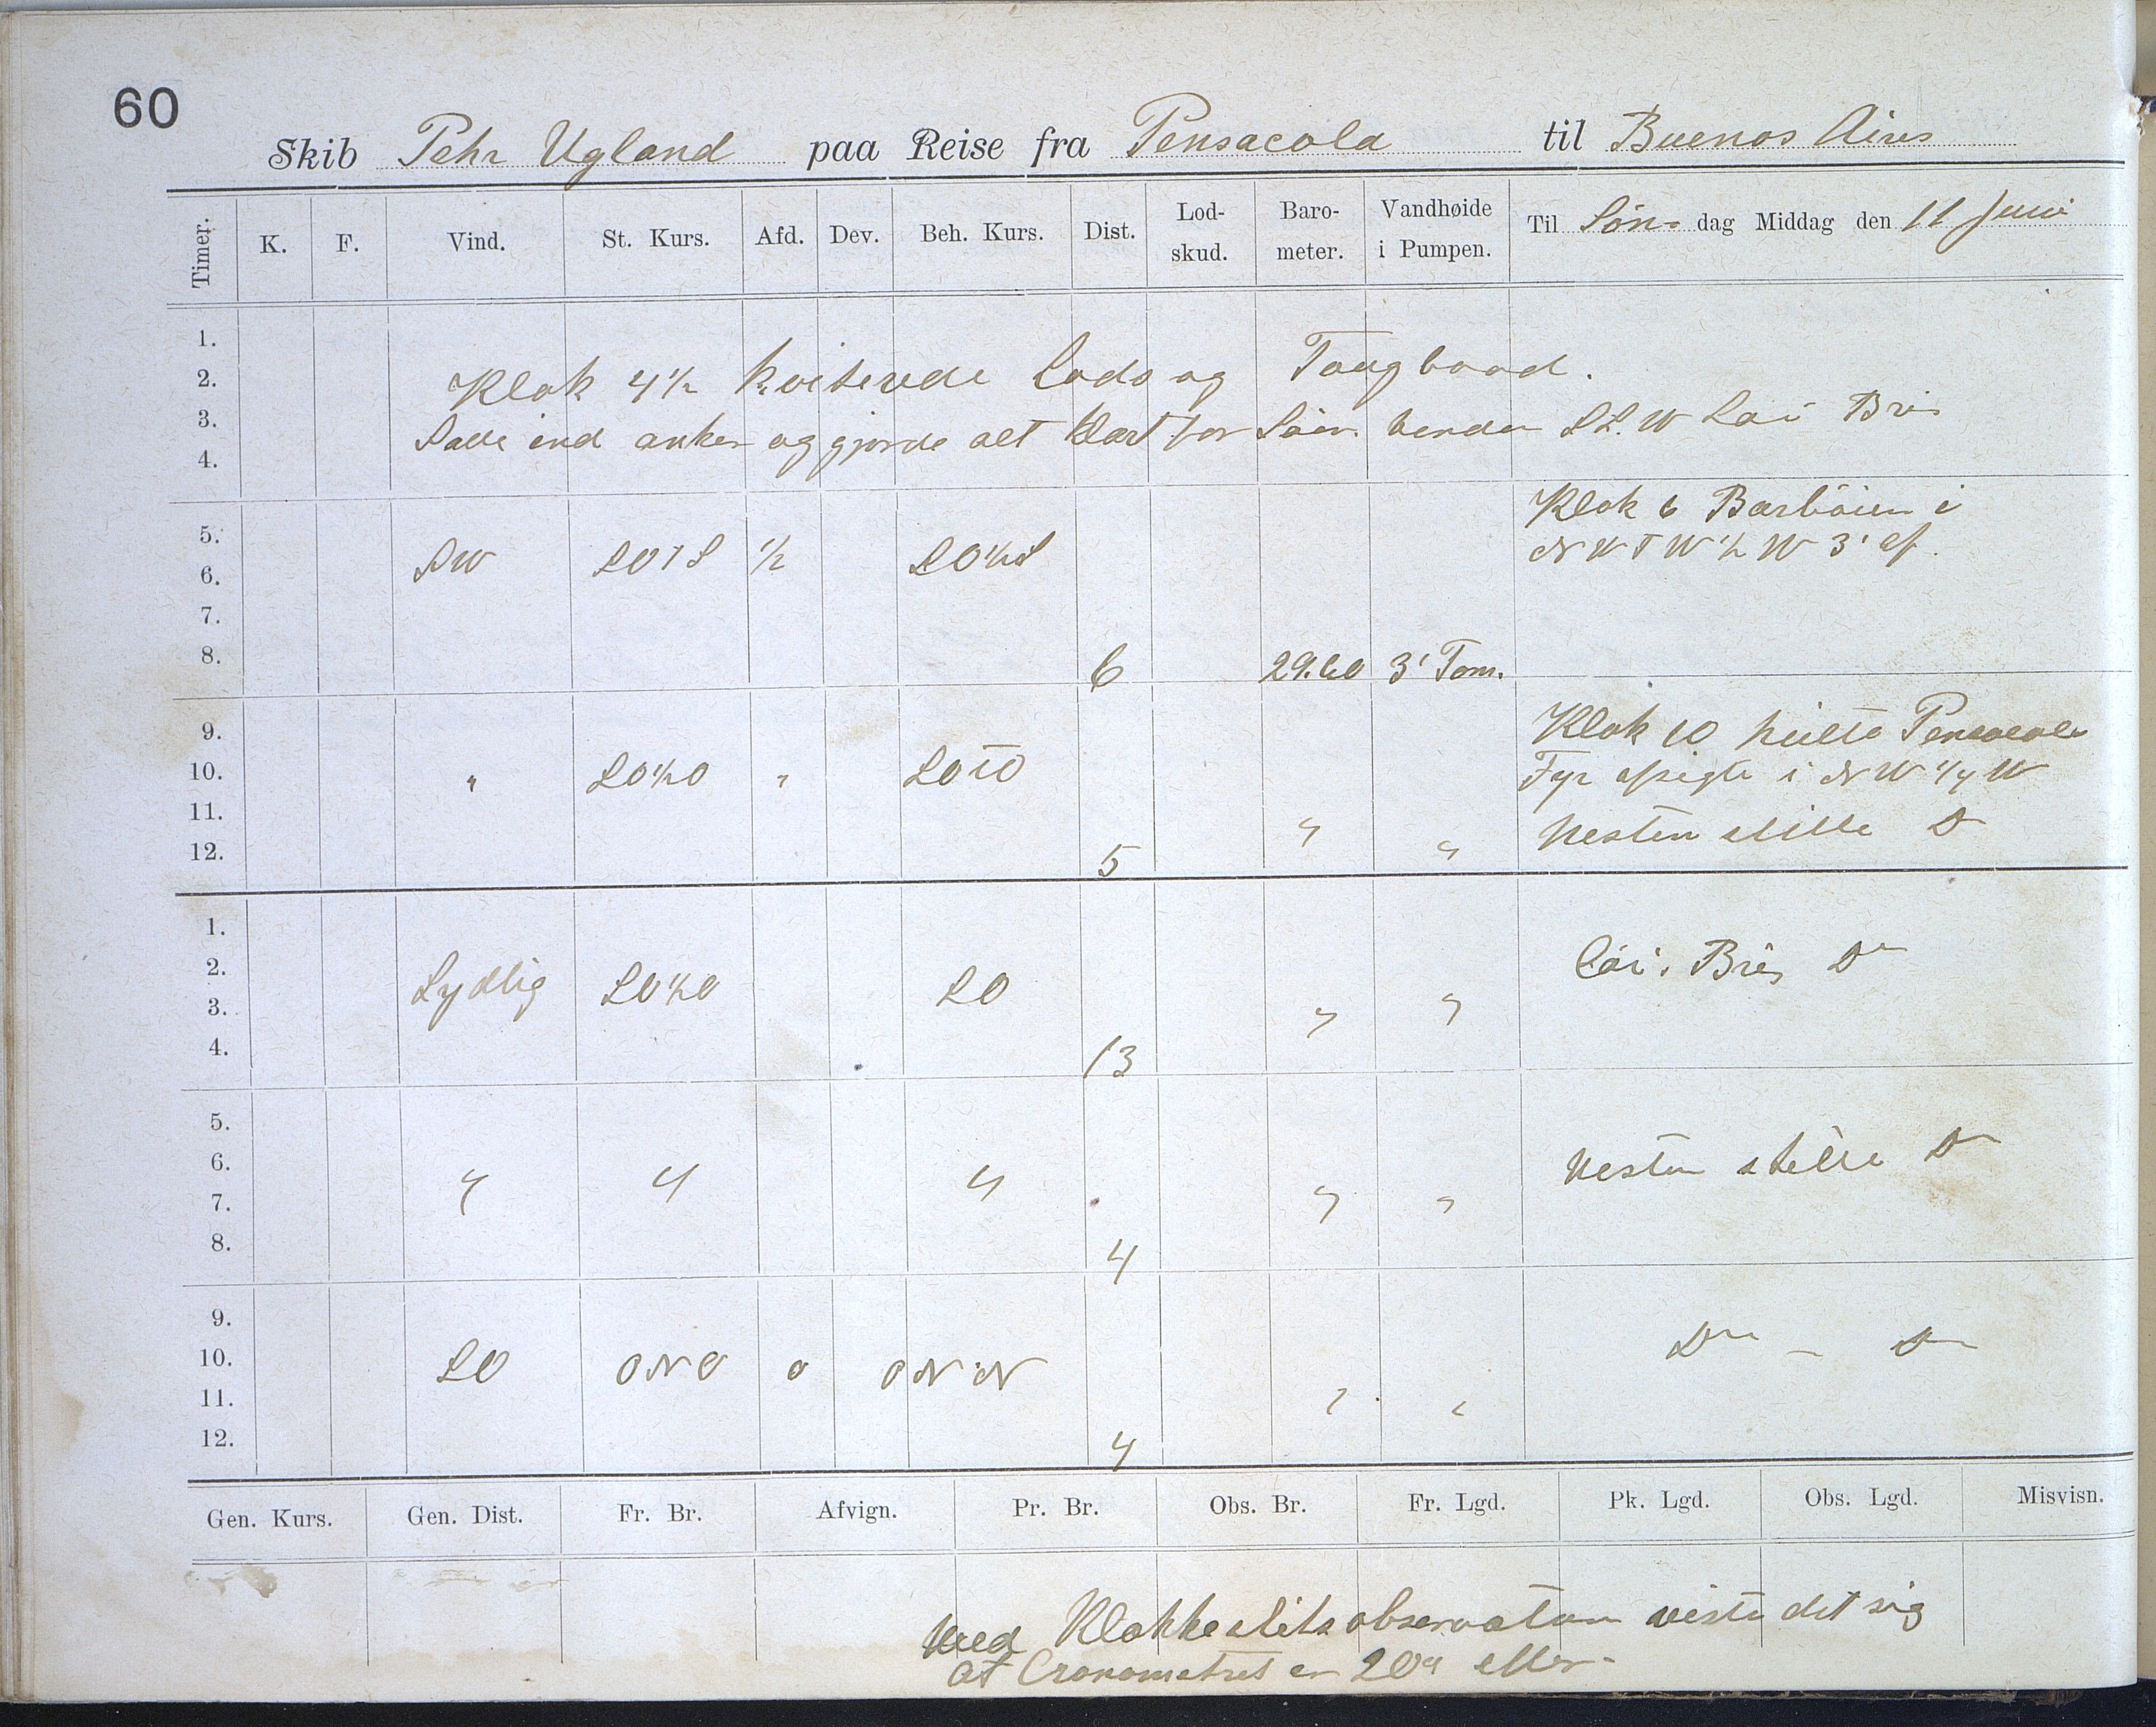 60
Skib Pehr Ugland paa Reise fra Pensacola til Buenos Aires
Timer. K. F. Vind. St. Kurs. Afd. Dev. Beh. Kurs. Dist. Lod-skud. Baro-meter. Vandhøide i Pumpen. Til Søn- dag Middag den 11 Juni
1.
2. Klok 4½ kviterede Lods og Taugbaad.
3. ind anker og gjorde alt klart for Söen. W Bris
4.
Klok 6 Barböien i
5. W ½ W 3' af.
6. SW ½
7.
8. 6 29.60 3' Tom.
9. Klok 10 Pensacola
10. " SO½O " SOTO Fyr afsigte i NW ¼ W
11. " " Nesten stille Do
12. 5
1.
2. Sydlig SO½O SO Löi. Bris Do
3. " "
4. 13
5.
6. " " " Nesten stille Do
7. " "
8. 4
9.
10. SO ONO 0 Do - Do
11. " "
12. 4
Gen. Kurs. Gen. Dist. Fr. Br. Afvign. Pr. Br. Obs. Br. Fr. Lgd. Pk. Lgd. Obs. Lgd. Misvisn.
Ved Klokkeslets observation viste det sig
at Cronometret er